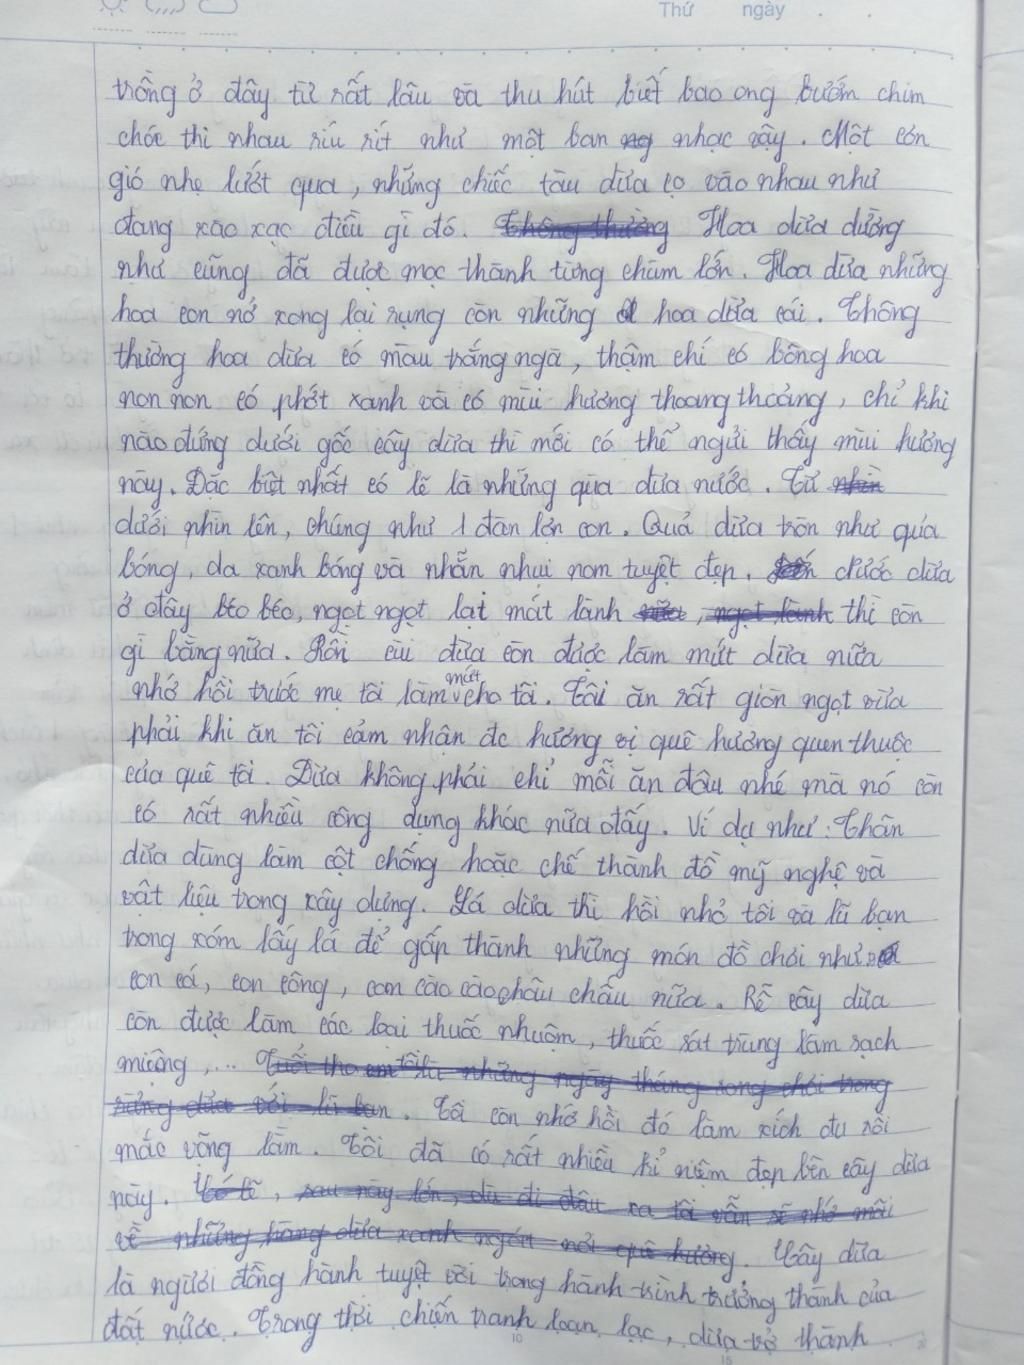 Thứ ngày . .
trồng ở đây từ rất lâu và thu hút biết bao ong bướm chim
chóc thi nhau ríu rít như một ban nhạc vậy. Một cơn
gió nhẹ lướt qua, những chiếc tàu dừa cọ vào nhau như
đang xào xạc điều gì đó. Thông thường Hoa dừa dường
như cũng đã được mọc thành từng chùm lớn. Hoa dừa những
hoa con nở xong lại rụng còn những hoa dừa cái. Thông
thường hoa dừa có màu trắng ngà, thậm chí có bông hoa
non non có phớt xanh và có mùi hương thoang thoảng, chỉ khi
nào đứng dưới gốc cây dừa thì mới có thể ngửi thấy mùi hương
này. Đặc biệt nhất có lẽ là những qủa dừa nước. Từ nhìn
dưới nhìn lên, chúng như 1 đàn lợn con. Quả dừa tròn như qủa
bóng, da xanh bóng và nhẵn nhụi nom tuyệt đẹp. nước dừa
ở đây béo béo, ngọt ngọt lại mát lành nữa, ngọt lành thì còn
gì bằng nữa. Rồi cùi dừa còn được làm mứt dừa nữa
nhớ hồi trước mẹ tôi làm mứt cho tôi. Tôi ăn rất giòn ngọt vừa
phải khi ăn tôi cảm nhận đc hương vị quê hương quen thuộc
của quê tôi. Dừa không phải chỉ mỗi ăn đâu nhé mà nó còn
có rất nhiều công dụng khác nữa đấy. Ví dụ như: Thân
dừa dùng làm cột chống hoặc chế thành đồ mỹ nghệ và
vật liệu trong xây dựng. Lá dừa thì hồi nhỏ tôi và lũ bạn
trong xóm lấy lá để gấp thành những món đồ chơi như
con cá, con công, con cào cào châu chấu nữa. Rễ cây dừa
còn được làm các loại thuốc nhuộm, thuốc sát trùng làm sạch
miệng,... Tuổi thơ em tôi là những ngày tháng rong chơi trong
rừng dừa với lũ bạn. Tôi còn nhớ hồi đó làm xích đu rồi
mắc võng lắm. Tôi đã có rất nhiều kỉ niệm đẹp bên cây dừa
này. Có lẽ, sau này lớn, dù đi đâu xa tôi vẫn sẽ nhớ mãi
về những hàng dừa xanh ngát nơi quê hương. Cây dừa
là người đồng hành tuyệt vời trong hành trình trưởng thành của
đất nước. Trong thời chiến tranh loạn lạc, dừa trở thành